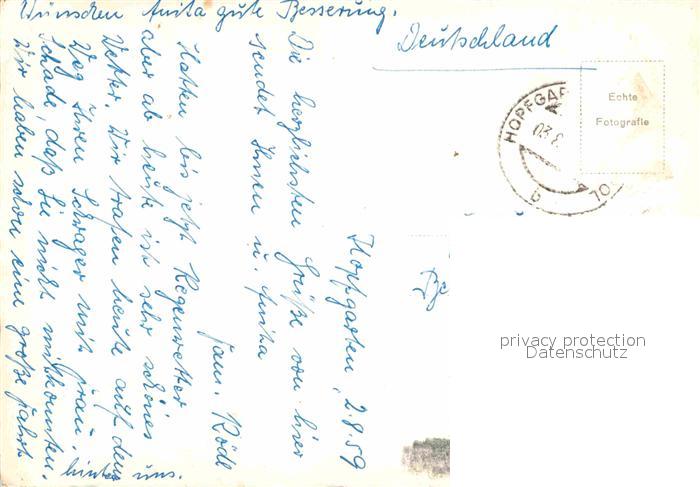 Hopfgarten, 2.8.59
Die herzlichsten Grüße von hier
sendet Ihnen u. Anita
Fam. Rödl
Hatten bis jetzt Regenwetter
aber ab heute ist sehr schönes
Wetter. Wir trafen heute auf dem
Weg Ihren Schwager mit Frau.
Schade, daß Sie nicht mitkonnten.
Wir haben schon eine große Fahrt
hinter uns.
Wünschen Anita gute Besserung.
Deutschland
Echte
Fotografie
HOPFGAR
b
privacy protection
Datenschutz